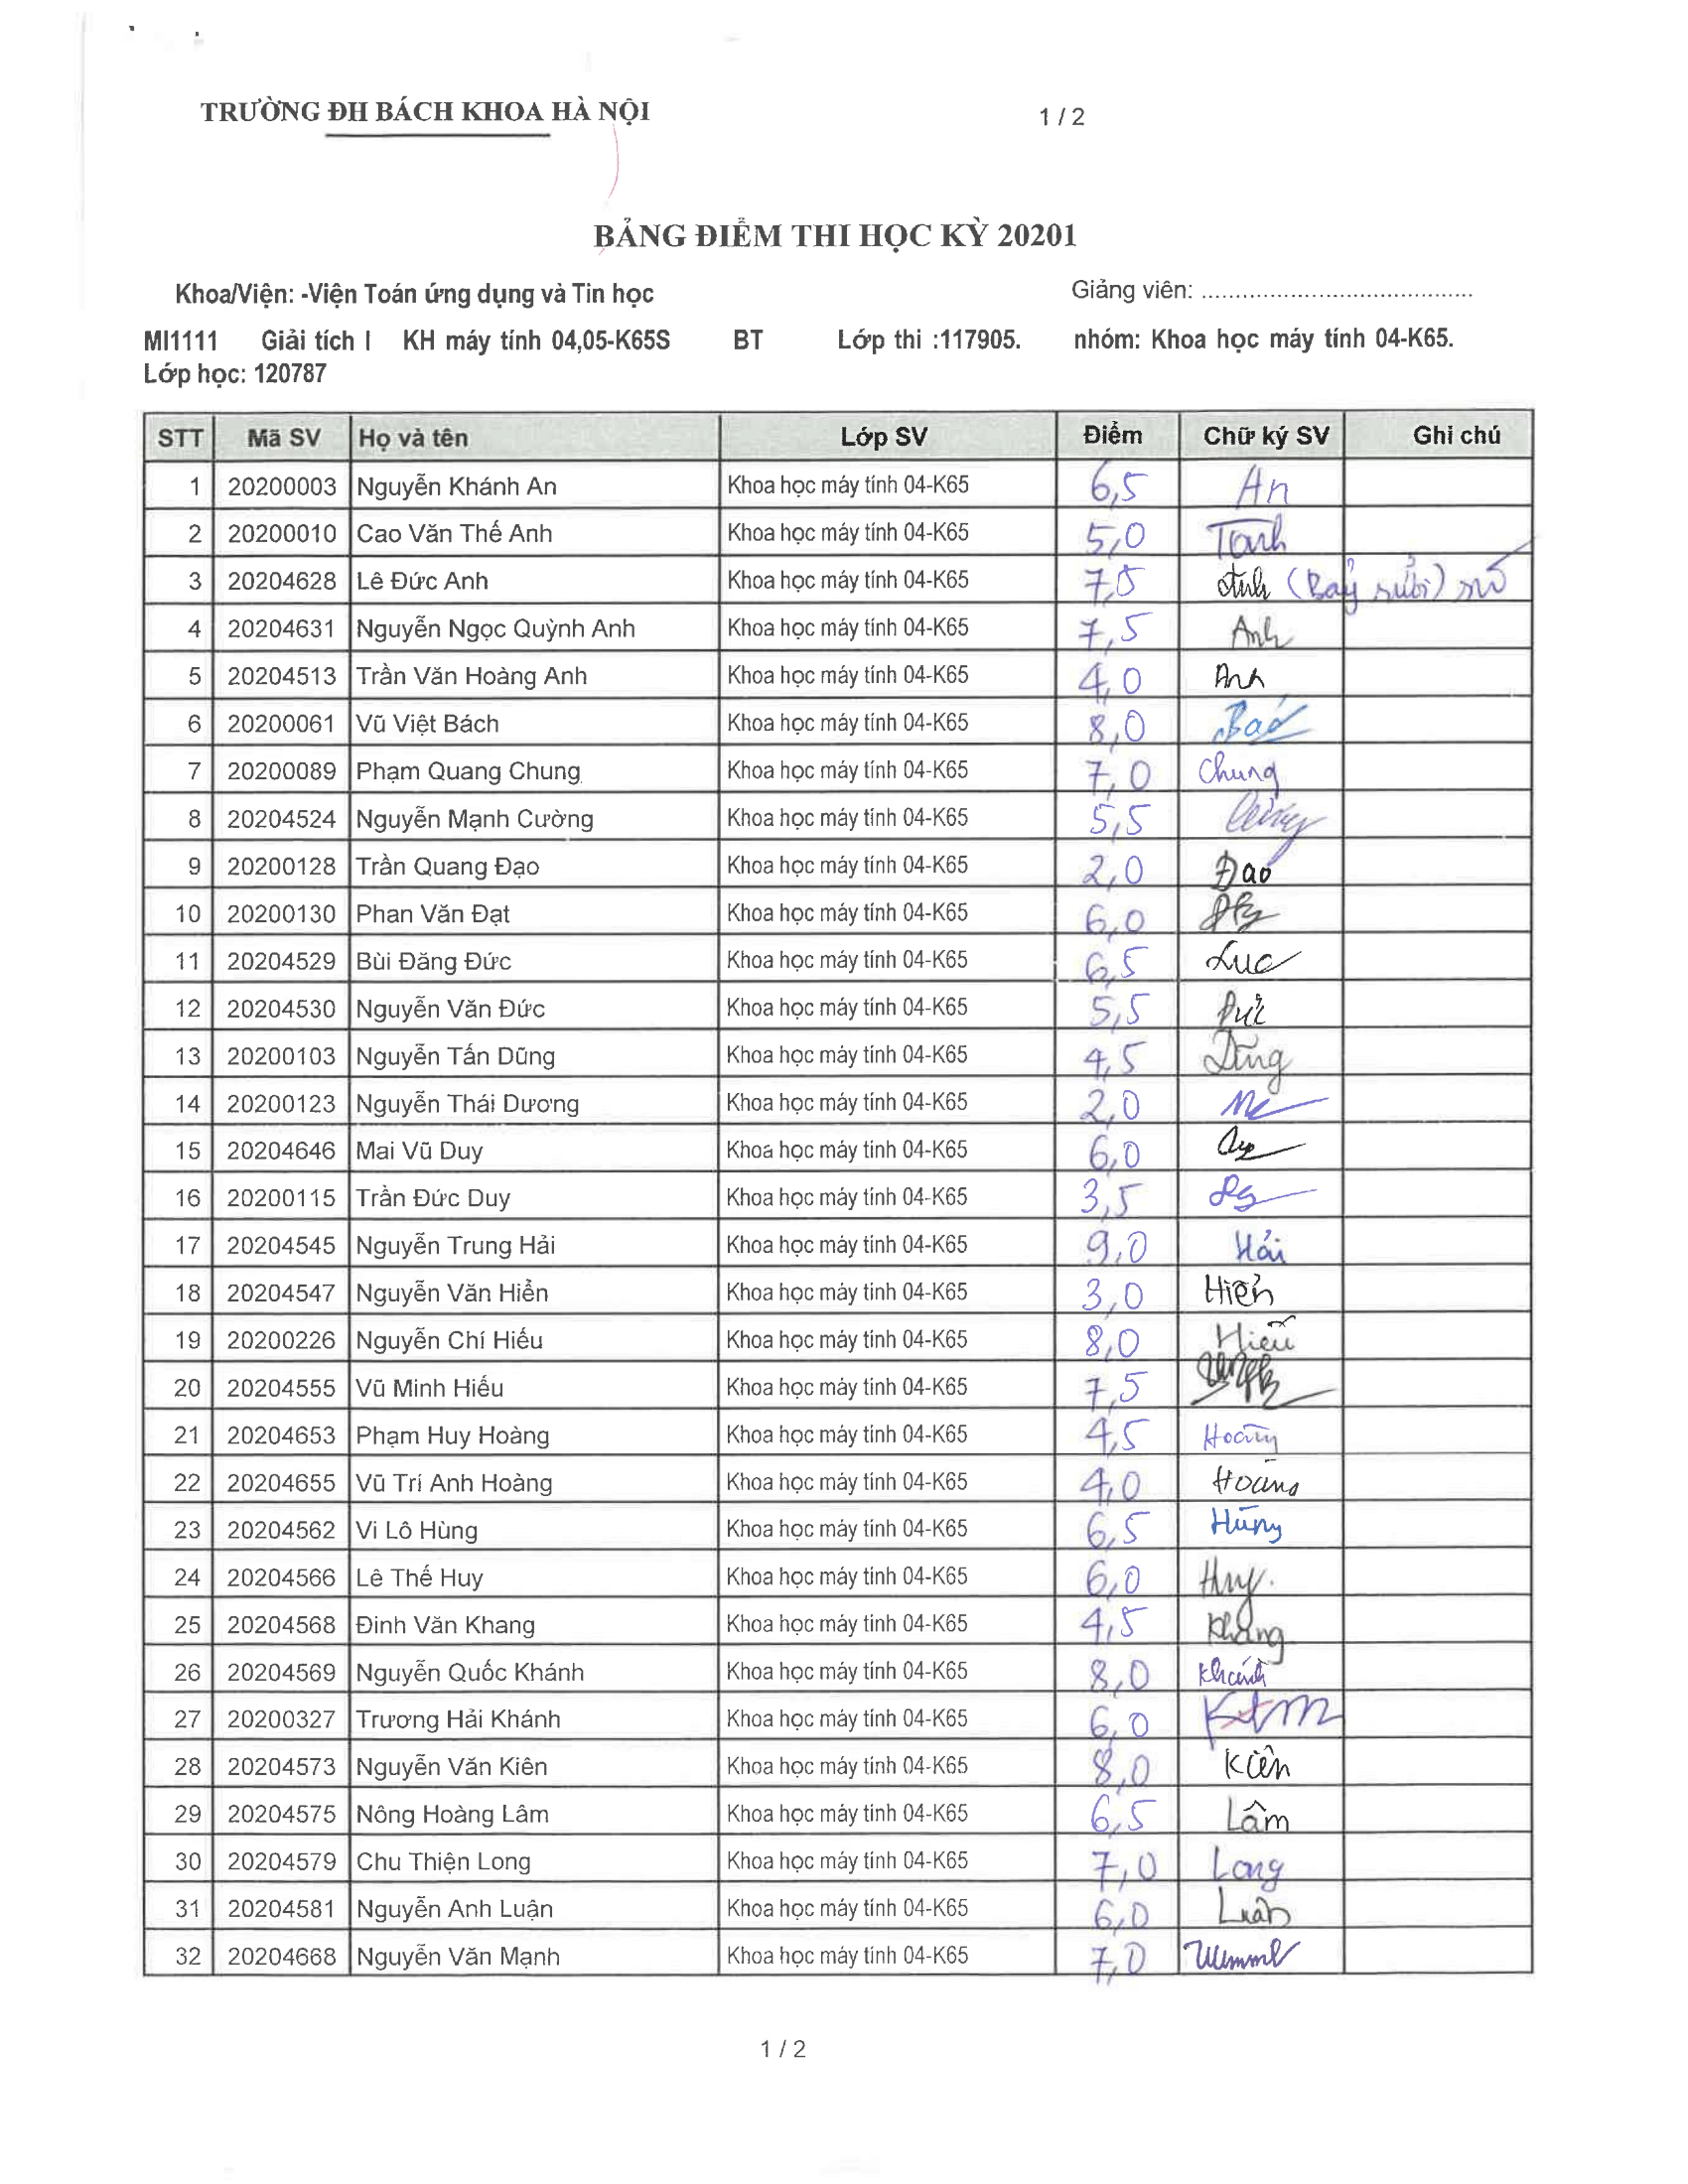 TRƯỜNG ĐH BÁCH KHOA HÀ NỘI 1 / 2
BẢNG ĐIỂM THI HỌC KỲ 20201
Khoa/Viện: -Viện Toán ứng dụng và Tin học Giảng viên: ........................................
MI1111 Giải tích I KH máy tính 04,05-K65S BT Lớp thi :117905. nhóm: Khoa học máy tính 04-K65.
Lớp học: 120787
STT Mã SV Họ và tên Lớp SV Điểm Chữ ký SV Ghi chú
1 20200003 Nguyễn Khánh An Khoa học máy tính 04-K65 6,5 An
2 20200010 Cao Văn Thế Anh Khoa học máy tính 04-K65 5,0
3 20204628 Lê Đức Anh Khoa học máy tính 04-K65 7,5 Anh (Bảy rưỡi)
4 20204631 Nguyễn Ngọc Quỳnh Anh Khoa học máy tính 04-K65 7,5 Anh
5 20204513 Trần Văn Hoàng Anh Khoa học máy tính 04-K65 4,0 Anh
6 20200061 Vũ Việt Bách Khoa học máy tính 04-K65 8,0
7 20200089 Phạm Quang Chung Khoa học máy tính 04-K65 7,0 Chung
8 20204524 Nguyễn Mạnh Cường Khoa học máy tính 04-K65 5,5
9 20200128 Trần Quang Đạo Khoa học máy tính 04-K65 2,0 Đạo
10 20200130 Phan Văn Đạt Khoa học máy tính 04-K65 6,0
11 20204529 Bùi Đăng Đức Khoa học máy tính 04-K65 6,5
12 20204530 Nguyễn Văn Đức Khoa học máy tính 04-K65 5,5 Đức
13 20200103 Nguyễn Tấn Dũng Khoa học máy tính 04-K65 4,5 Dũng
14 20200123 Nguyễn Thái Dương Khoa học máy tính 04-K65 2,0
15 20204646 Mai Vũ Duy Khoa học máy tính 04-K65 6,0
16 20200115 Trần Đức Duy Khoa học máy tính 04-K65 3,5
17 20204545 Nguyễn Trung Hải Khoa học máy tính 04-K65 9,0 Hải
18 20204547 Nguyễn Văn Hiển Khoa học máy tính 04-K65 3,0 Hiển
19 20200226 Nguyễn Chí Hiếu Khoa học máy tính 04-K65 8,0 Hiếu
20 20204555 Vũ Minh Hiếu Khoa học máy tính 04-K65 7,5
21 20204653 Phạm Huy Hoàng Khoa học máy tính 04-K65 4,5 Hoàng
22 20204655 Vũ Trí Anh Hoàng Khoa học máy tính 04-K65 4,0 Hoàng
23 20204562 Vi Lô Hùng Khoa học máy tính 04-K65 6,5 Hùng
24 20204566 Lê Thế Huy Khoa học máy tính 04-K65 6,0 Huy.
25 20204568 Đinh Văn Khang Khoa học máy tính 04-K65 4,5 Khang
26 20204569 Nguyễn Quốc Khánh Khoa học máy tính 04-K65 8,0 Khánh
27 20200327 Trương Hải Khánh Khoa học máy tính 04-K65 6,0
28 20204573 Nguyễn Văn Kiên Khoa học máy tính 04-K65 8,0 Kiên
29 20204575 Nông Hoàng Lâm Khoa học máy tính 04-K65 6,5 Lâm
30 20204579 Chu Thiện Long Khoa học máy tính 04-K65 7,0 Long
31 20204581 Nguyễn Anh Luận Khoa học máy tính 04-K65 6,0 Luận
32 20204668 Nguyễn Văn Mạnh Khoa học máy tính 04-K65 7,0
1 / 2